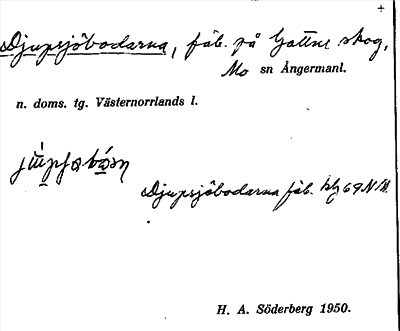 +
Djupsjöbodarna, fäb. på Gottne skog,
Mo sn Ångermanl.
n. doms. tg. Västernorrlands l.
Djupsjöbodarna fäb. 69 NV.
H. A. Söderberg 1950.